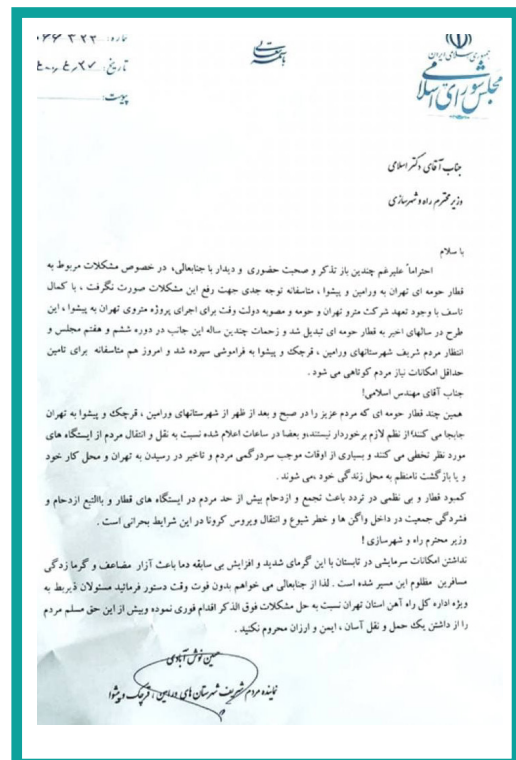 جمهوری اسلامی ایران
مجلس شورای اسلامی
باسمه تعالی
تاریخ:
پیوست:
جناب آقای دکتر اسلامی
وزیر محترم راه و شهرسازی
با سلام
احتراماً علیرغم چندین باز تذکر و صحبت حضوری و دیدار با جنابعالی، در خصوص مشکلات مربوط به
قطار حومه ای تهران به ورامین و پیشوا ، متاسفانه توجه جدی جهت رفع این مشکلات صورت نگرفت ، با کمال
تاسف با وجود تعهد شرکت مترو تهران و حومه و مصوبه دولت وقت برای اجرای پروژه متروی تهران به پیشوا ، این
طرح در سالهای اخیر به قطار حومه ای تبدیل شد و زحمات چندین ساله این جانب در دوره ششم و هفتم مجلس و
انتظار مردم شریف شهرستانهای ورامین ، قرچک و پیشوا به فراموشی سپرده شد و امروز هم متاسفانه برای تامین
حداقل امکانات نیاز مردم کوتاهی می شود .
جناب آقای مهندس اسلامی!
همین چند قطار حومه ای که مردم عزیز را در صبح و بعد از ظهر از شهرستانهای ورامین ، قرچک و پیشوا به تهران
جابجا می کنند؛از نظم لازم برخوردار نیستند،و بعضا در ساعات اعلام شده نسبت به نقل و انتقال مردم از ایستگاه های
مورد نظر تخطی می کنند و بسیاری از اوقات موجب سردرگمی مردم و تاخیر در رسیدن به تهران و محل کار خود
و یا بازگشت نامنظم به محل زندگی خود ،می شوند .
کمبود قطار و بی نظمی در تردد باعث تجمع و ازدحام بیش از حد مردم در ایستگاه های قطار و باالتبع ازدحام و
فشردگی جمعیت در داخل واگن ها و خطر شیوع و انتقال ویروس کرونا در این شرایط بحرانی است .
وزیر محترم راه و شهرسازی !
نداشتن امکانات سرمایشی در تابستان با این گرمای شدید و افزایش بی سابقه دما باعث آزار مضاعف و گرما زدگی
مسافرین مظلوم این مسیر شده است . لذا از جنابعالی می خواهم بدون فوت وقت دستور فرمائید مسئولان ذیربط به
ویژه اداره کل راه آهن استان تهران نسبت به حل مشکلات فوق الذکر اقدام فوری نموده وبیش از این حق مسلم مردم
را از داشتن یک حمل و نقل آسان ، ایمن و ارزان محروم نکنید .
حسین نوش آبادی
نماینده مردم شریف شهرستان های ورامین ، قرچک و پیشوا